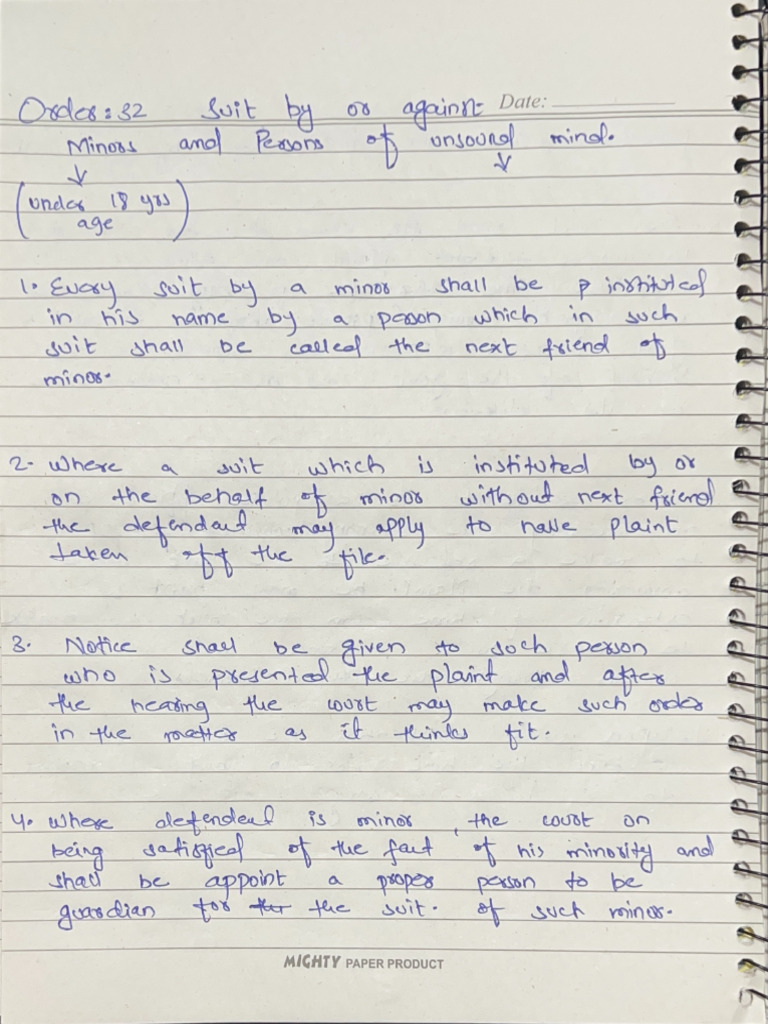 Order: 32 Suit by or against Date:
Minors and Persons of unsound mind.
(under 18 yrs
age)
1. Every suit by a minor shall be instituted
in his name by a person which in such
suit shall be called the next friend of
minor.
2. Where a suit which is instituted by or
on the behalf of minor without next friend
the defendent may apply to have plaint
taken off the file.
3. Notice shall be given to such person
who is presented the plaint and after
the hearing the court may make such order
in the matter as it thinks fit.
4. Where defendent is minor, the court on
being satisfied of the fact of his minority and
shall be appoint a proper person to be
guardian for the suit. of such minor.
MIGHTY PAPER PRODUCT